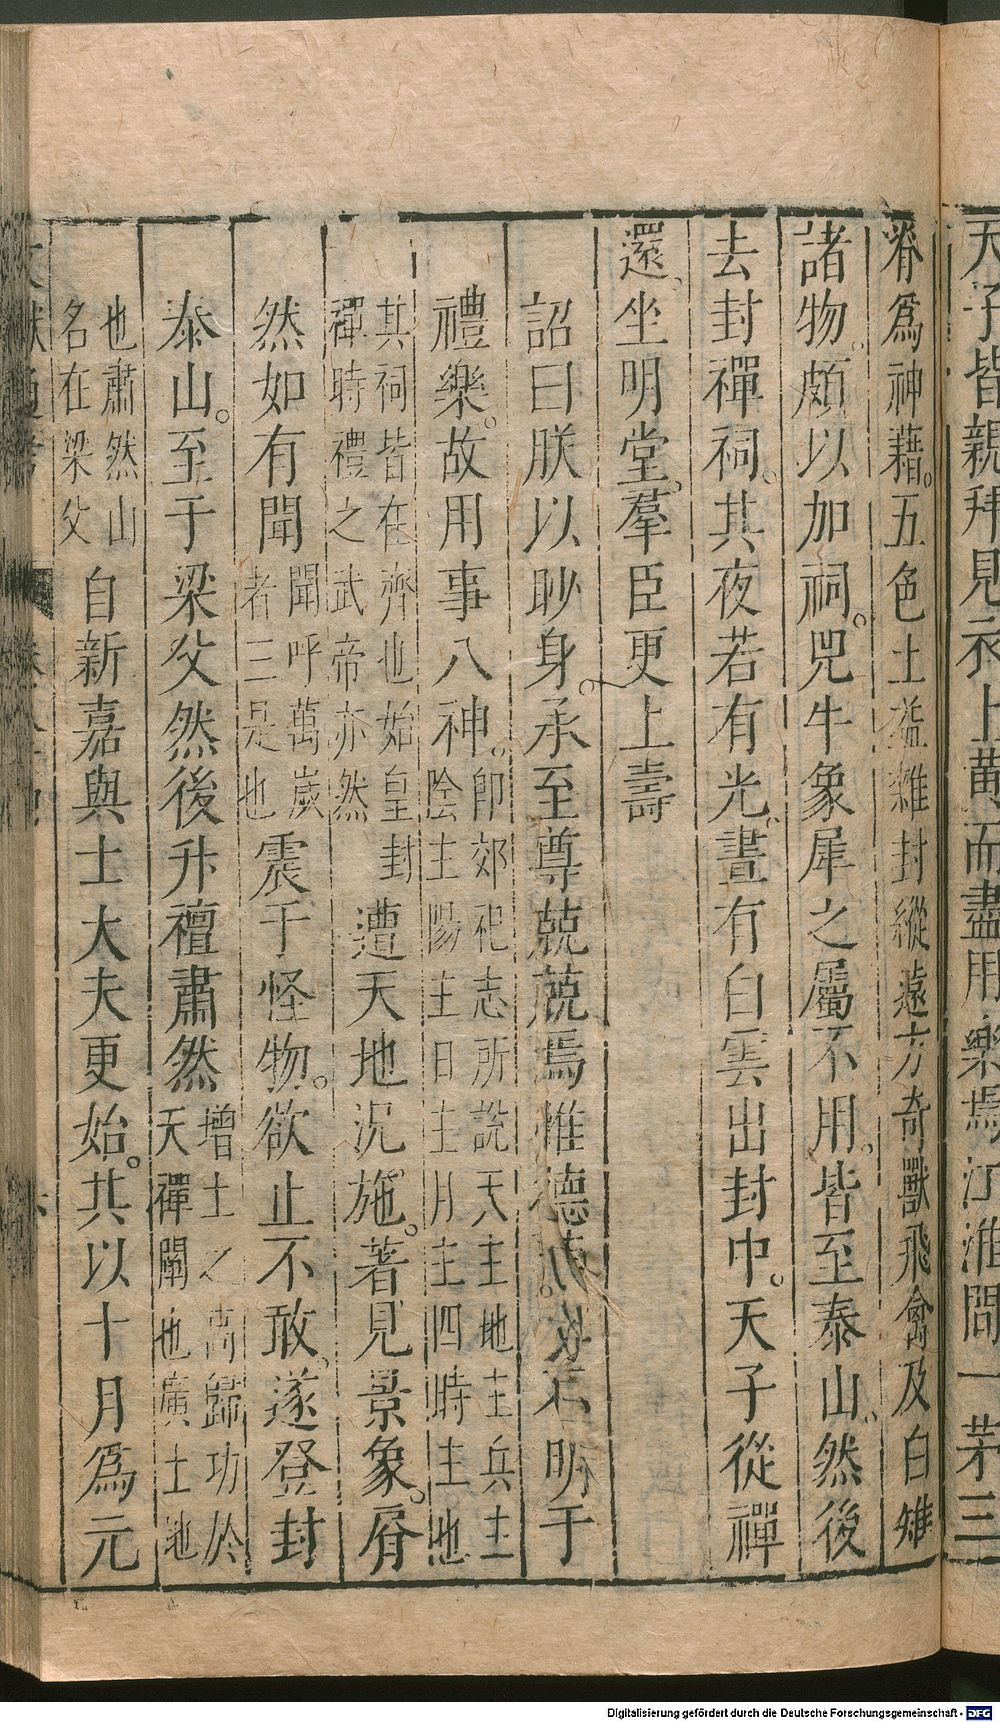 天子皆親拜見衣上黃而盡用樂焉江淮間一茅三
脊爲神藉。五色土益雜封縱遠方奇獸飛禽及白雉
諸物。頗以加祠。兕牛象犀之屬不用。皆至泰山。然後
去封禪祠。其夜若有光。晝有白雲出封中。天子從禪
還。坐明堂。羣臣更上壽
詔曰朕以眇身。承至尊兢兢焉惟德不明于
禮樂。故用事八神。
卽郊祀志所說天主地主兵主
陰主陽主日主月主四時主也
其祠皆在齊也始皇封
禪時禮之武帝亦然
遭天地況施。著見景象。屑
然如有聞
聞呼萬歲
者三是也
震于怪物。欲止不敢。遂登封
泰山。至于梁父然後升襢肅然
增土之高歸功於
天禪闡也廣土地
也肅然山
名在梁父
自新嘉與士大夫更始。其以十月爲元
Digitalisierung gefördert durch die Deutsche Forschungsgemeinschaft - DFG